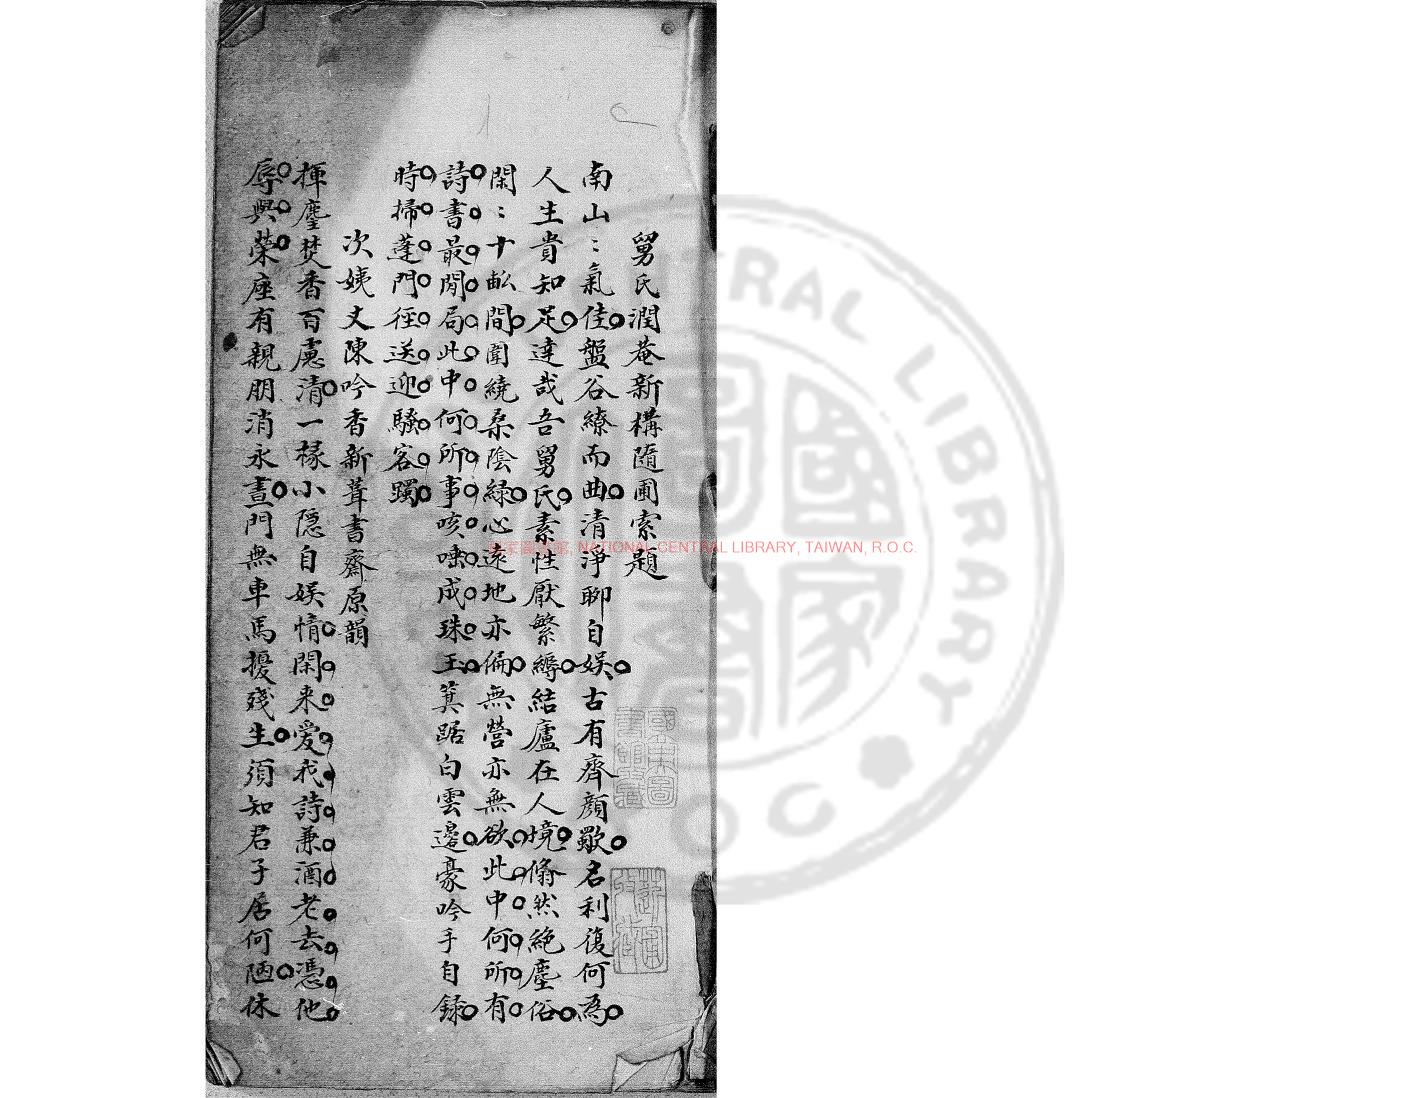 舅氏潤菴新構隨圃索題
南山〻氣佳盤谷繚而曲清淨聊自娱古有齊顔歜名利復何為
人生貴知足達哉吾舅氏素性厭繁縟結廬在人境翛然絶塵俗
閑〻十畝間圍繞桑陰緑心遠地亦偏無營亦無欲此中何所有
詩書最閒局此中何所事咳唾成珠玉箕踞白雲邊豪吟手自録
時掃蓬門徑送迎騷客躅
次姨丈陳吟香新葺書齋原韻
揮麈焚香百慮清一椽小隠自娱情閑来爱我詩兼酒老去憑他
辱與榮座有親朋消永晝門無車馬擾殘生須知君子居何陋休
國家圖書館, NATIONAL CENTRAL LIBRARY, TAIWAN, R.O.C.
CENTRAL LIBRARY
R.O.C.